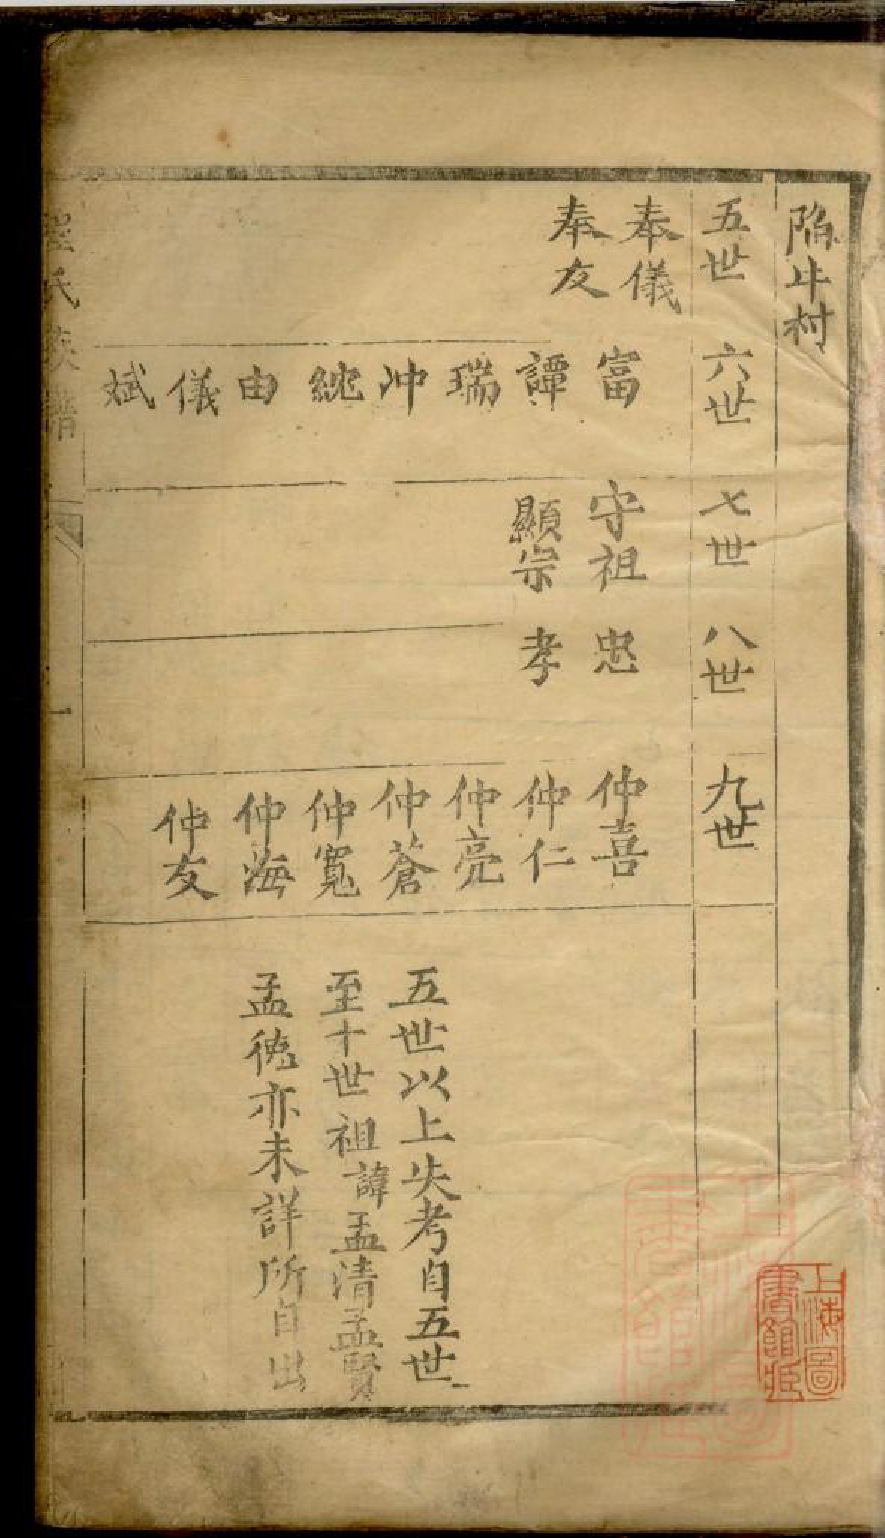 陷牛村
五世 六世 七世 八世 九世
奉儀
奉友
富
譚
瑞
冲
統
由
儀
斌
守祖
顯宗
忠
孝
仲喜
仲仁
仲亮
仲蒼
仲寬
仲海
仲友
五世以上失考自五世
至十世祖諱孟清孟賢
孟德亦未詳所自出
氏族譜
一
上海圖
書館藏